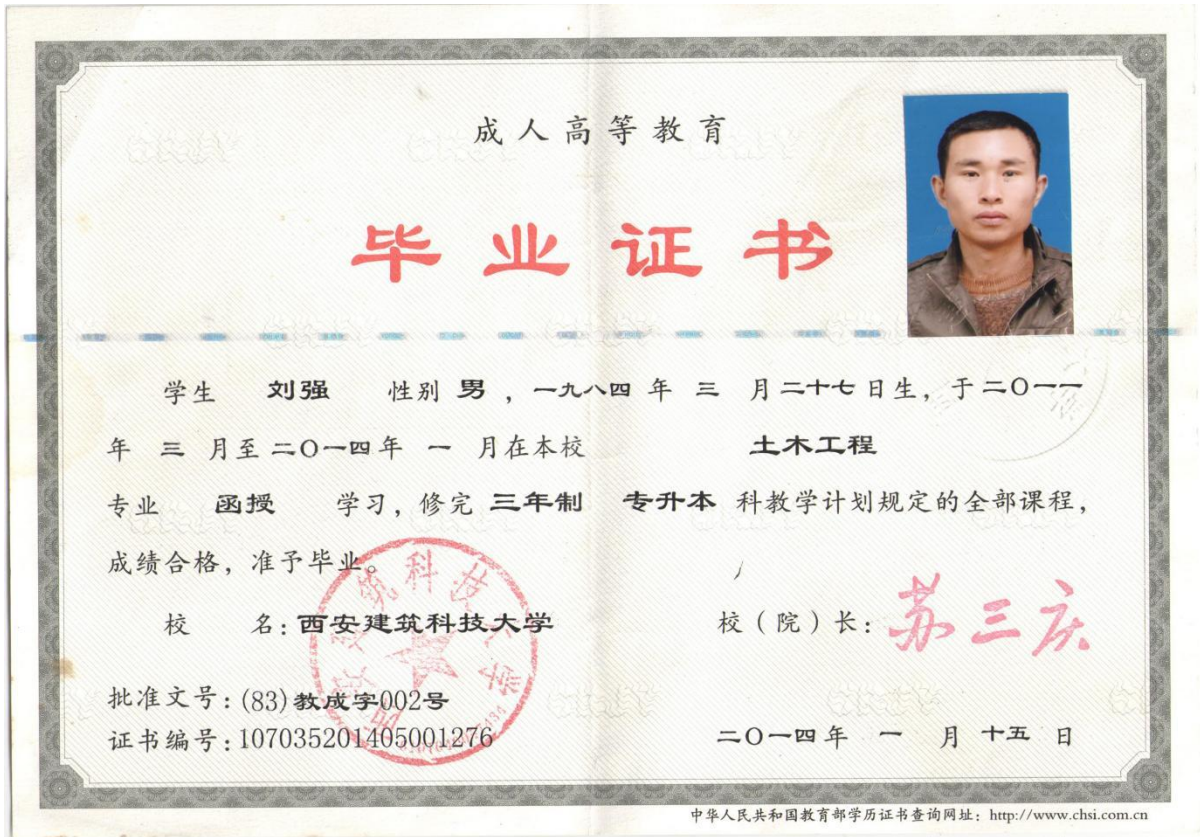 成人高等教育
毕业证书
学生 刘强 性别 男，一九八四 年 三 月二十七日生，于二〇一一
年 三 月至二〇一四年 一 月在本校 土木工程
专业 函授 学习，修完 三年制 专升本 科教学计划规定的全部课程，
成绩合格，准予毕业。
校 名：西安建筑科技大学
校（院）长：苏三庆
批准文号：(83)教成字002号
证书编号：107035201405001276
二〇一四年 一 月 十五 日
中华人民共和国教育部学历证书查询网址：http://www.chsi.com.cn